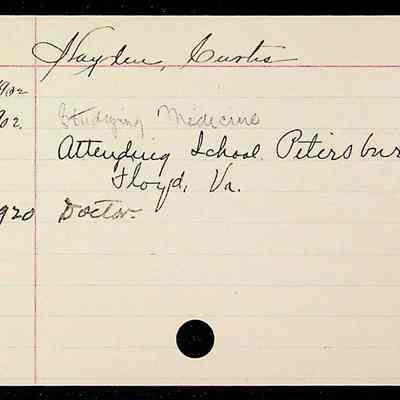 Hayden, Curtis
1902
902. Studying Medicine
Attending School. Petersbur
Floyd, Va.
920 Doctor.